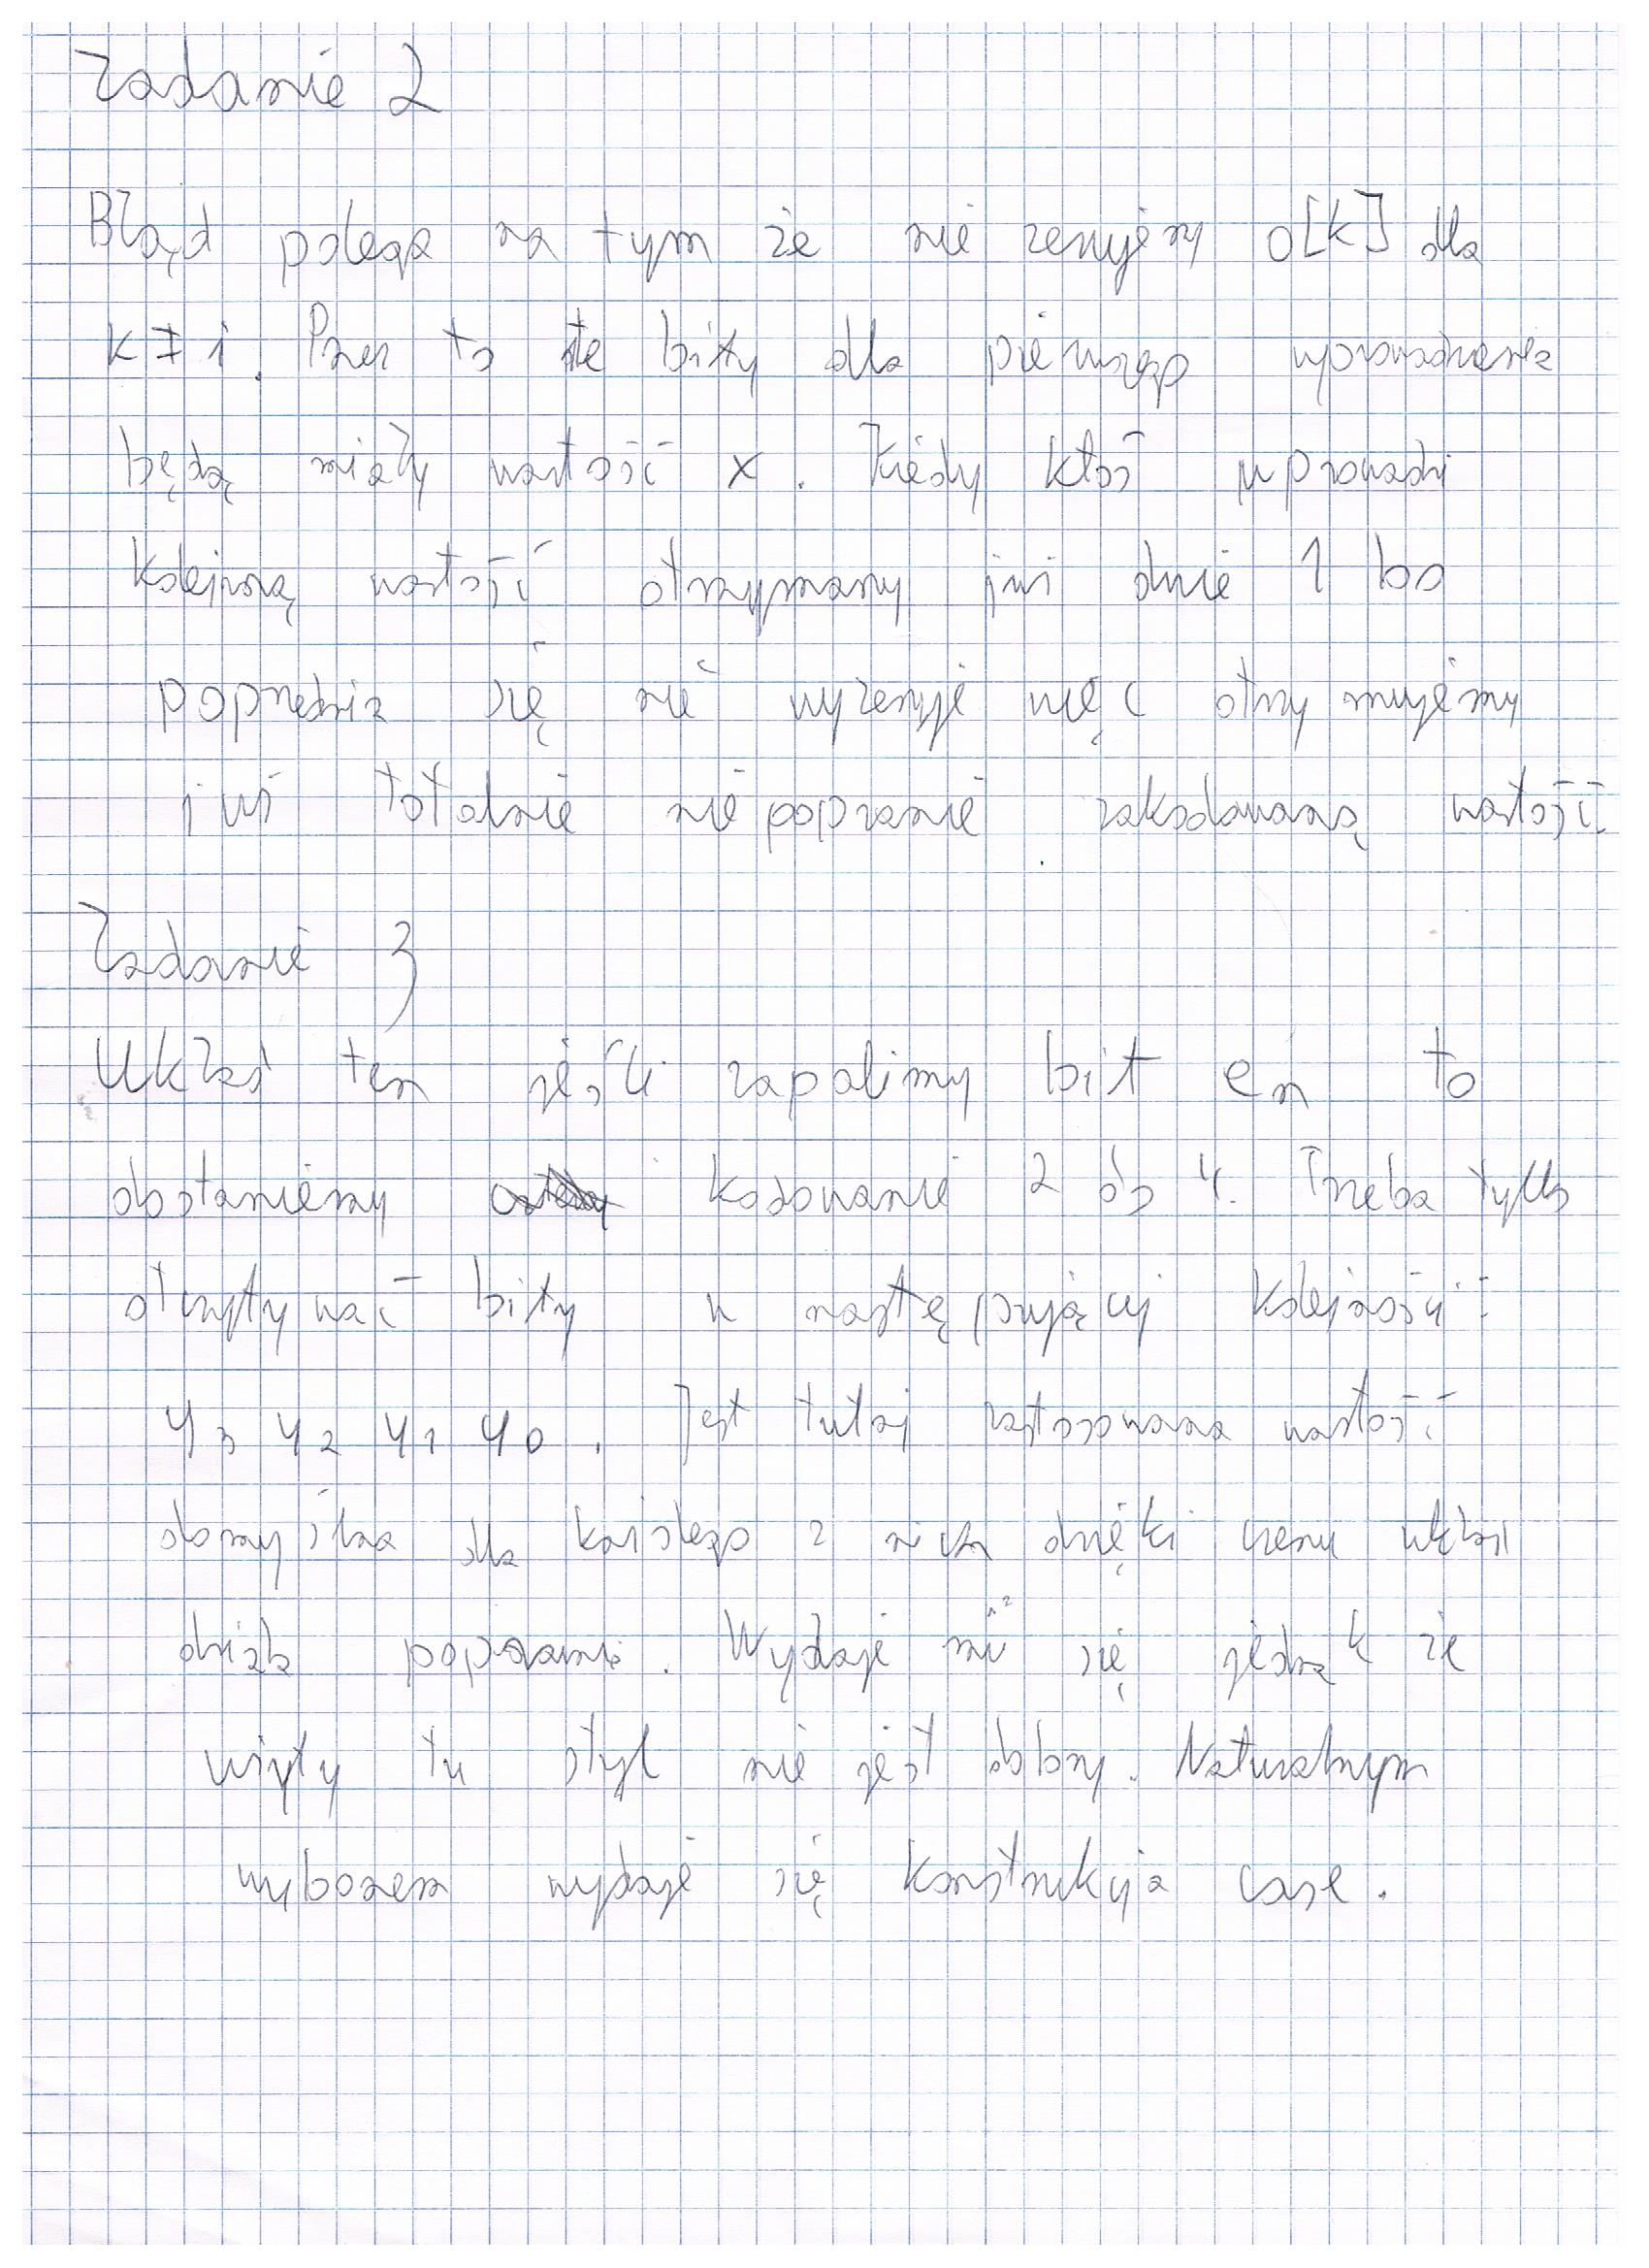 Zadanie 2
Błąd polega na tym że nie zerujemy o[k] dla
k ≠ i. Przez to te bity dla pierwszego wprowadzenia
będą miały wartość x. Kiedy ktoś wprowadzi
kolejną wartość otrzymamy już dwie 1 bo
poprzednia się nie wyzeruje więc otrzymujemy
już totalnie niepoprawnie zakodowaną wartość.
Zadanie 3
Układ ten jeśli zapalimy bit en to
dostaniemy kodowanie 2 do 4. Trzeba tylko
otczytywać bity w następującej kolejności:
y3 y2 y1 y0. Jest tutaj zastosowana wartość
domyślna dla każdego z nich dzięki czemu układ
działa poprawnie. Wydaje mi się jednak że
użyty tu styl nie jest dobry. Naturalnym
wyborem wydaje się konstrukcja case.